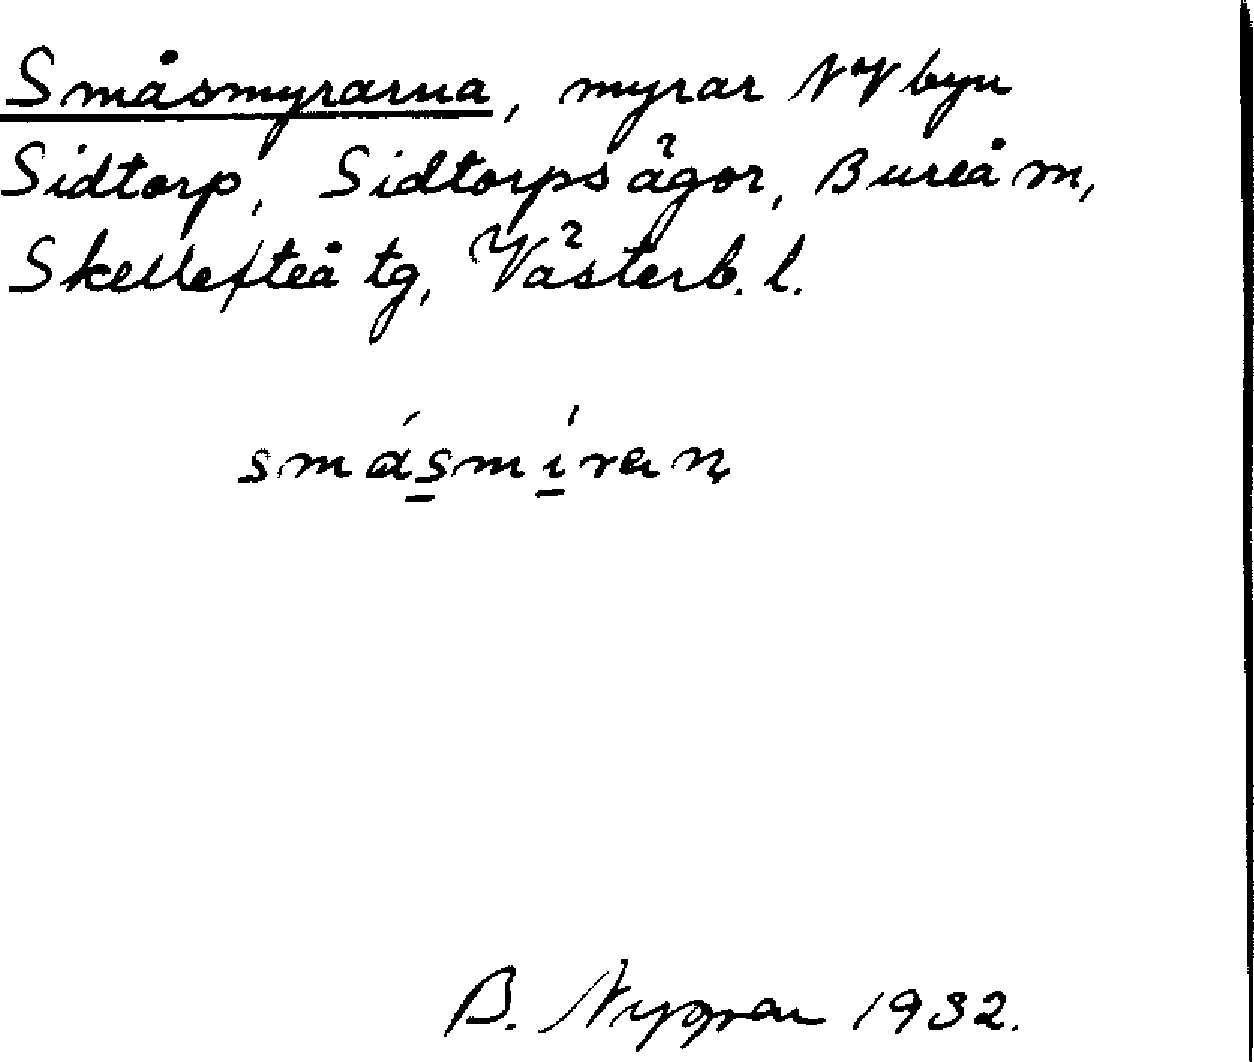 Småsmyrarna, myrar NV byn
Sidtorp, Sidtorps ägor, Bureå m,
Skellefteå tg, Västerb. l.
smásmíraņ
B. Nygren 1932.